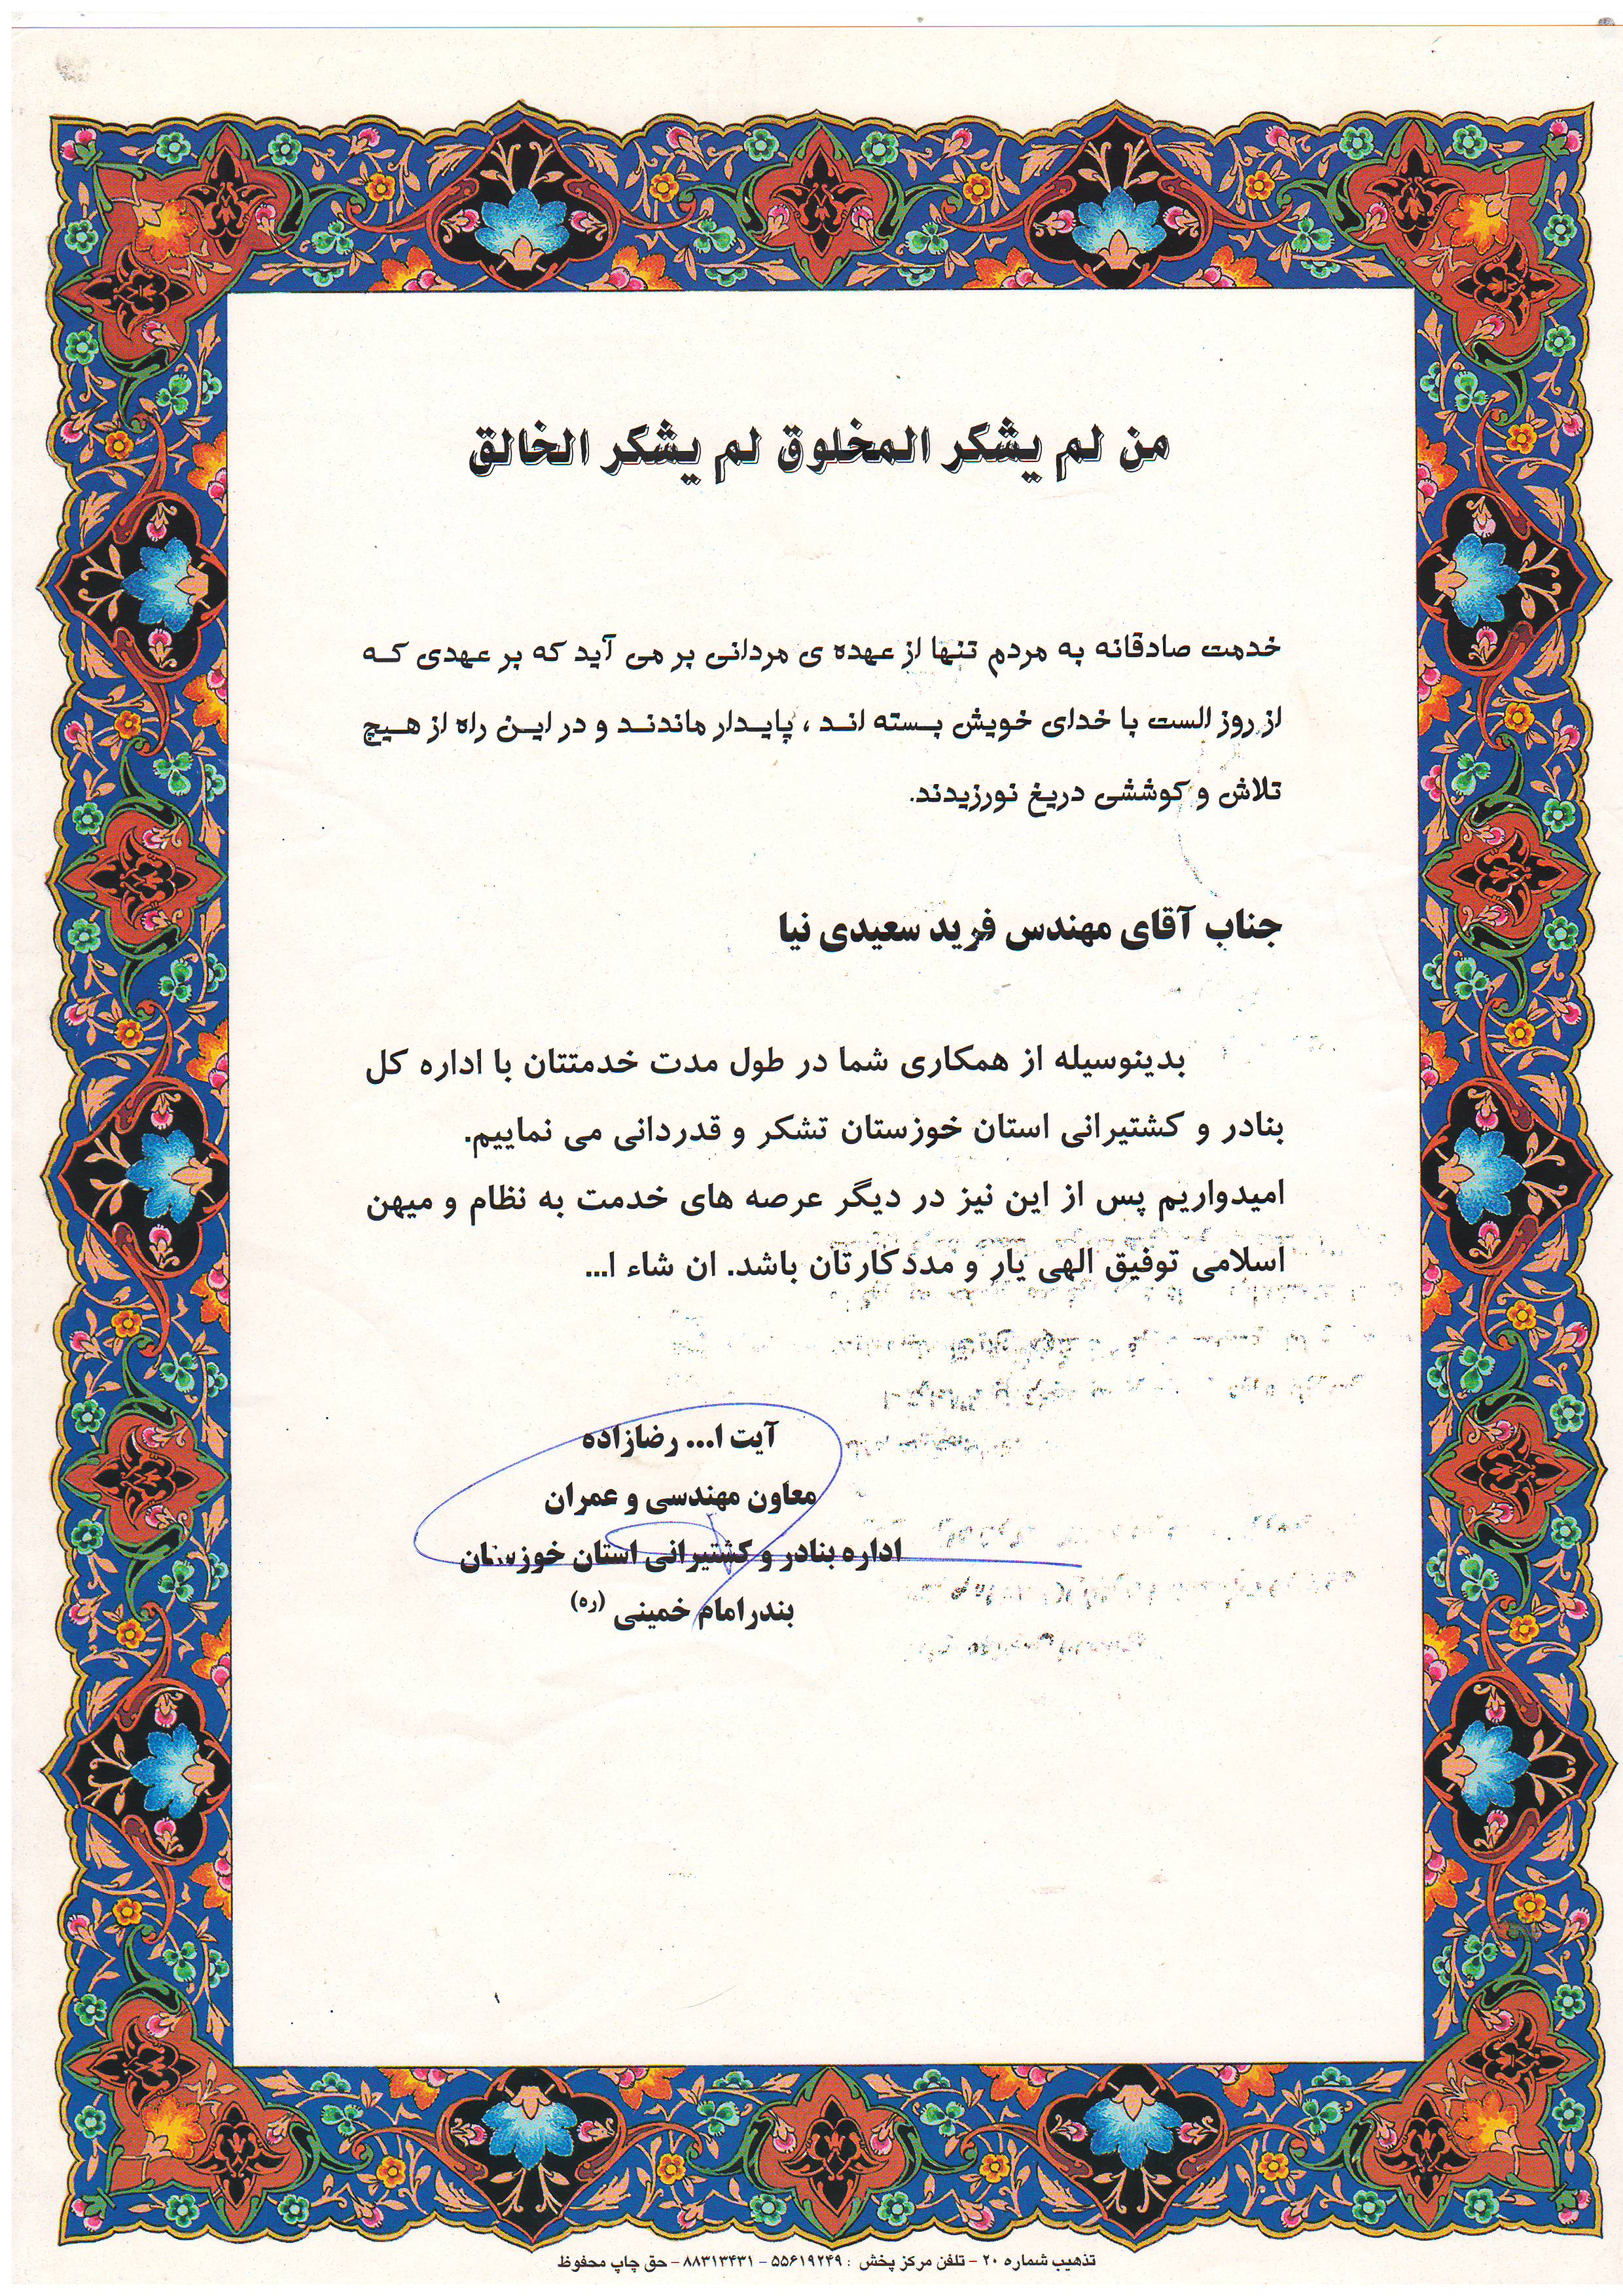 من لم يشكر المخلوق لم يشكر الخالق
خدمت صادقانه به مردم تنها از عهده ی مردانی بر می آید که بر عهدی که
از روز الست با خدای خویش بسته اند ، پایدار ماندند و در این راه از هیچ
تلاش و کوششی دریغ نورزیدند.
جناب آقای مهندس فرید سعیدی نیا
بدینوسیله از همکاری شما در طول مدت خدمتتان با اداره کل
بنادر و کشتیرانی استان خوزستان تشکر و قدردانی می نماییم.
امیدواریم پس از این نیز در دیگر عرصه های خدمت به نظام و میهن
اسلامی توفیق الهی یار و مددکارتان باشد. ان شاء ا...
آیت ا... رضازاده
معاون مهندسی و عمران
اداره بنادر و کشتیرانی استان خوزستان
بندر امام خمینی (ره)
تذهیب شماره ۲۰ - تلفن مرکز پخش : ۵۵۶۱۹۲۴۹ - ۸۸۳۱۳۴۳۱ - حق چاپ محفوظ